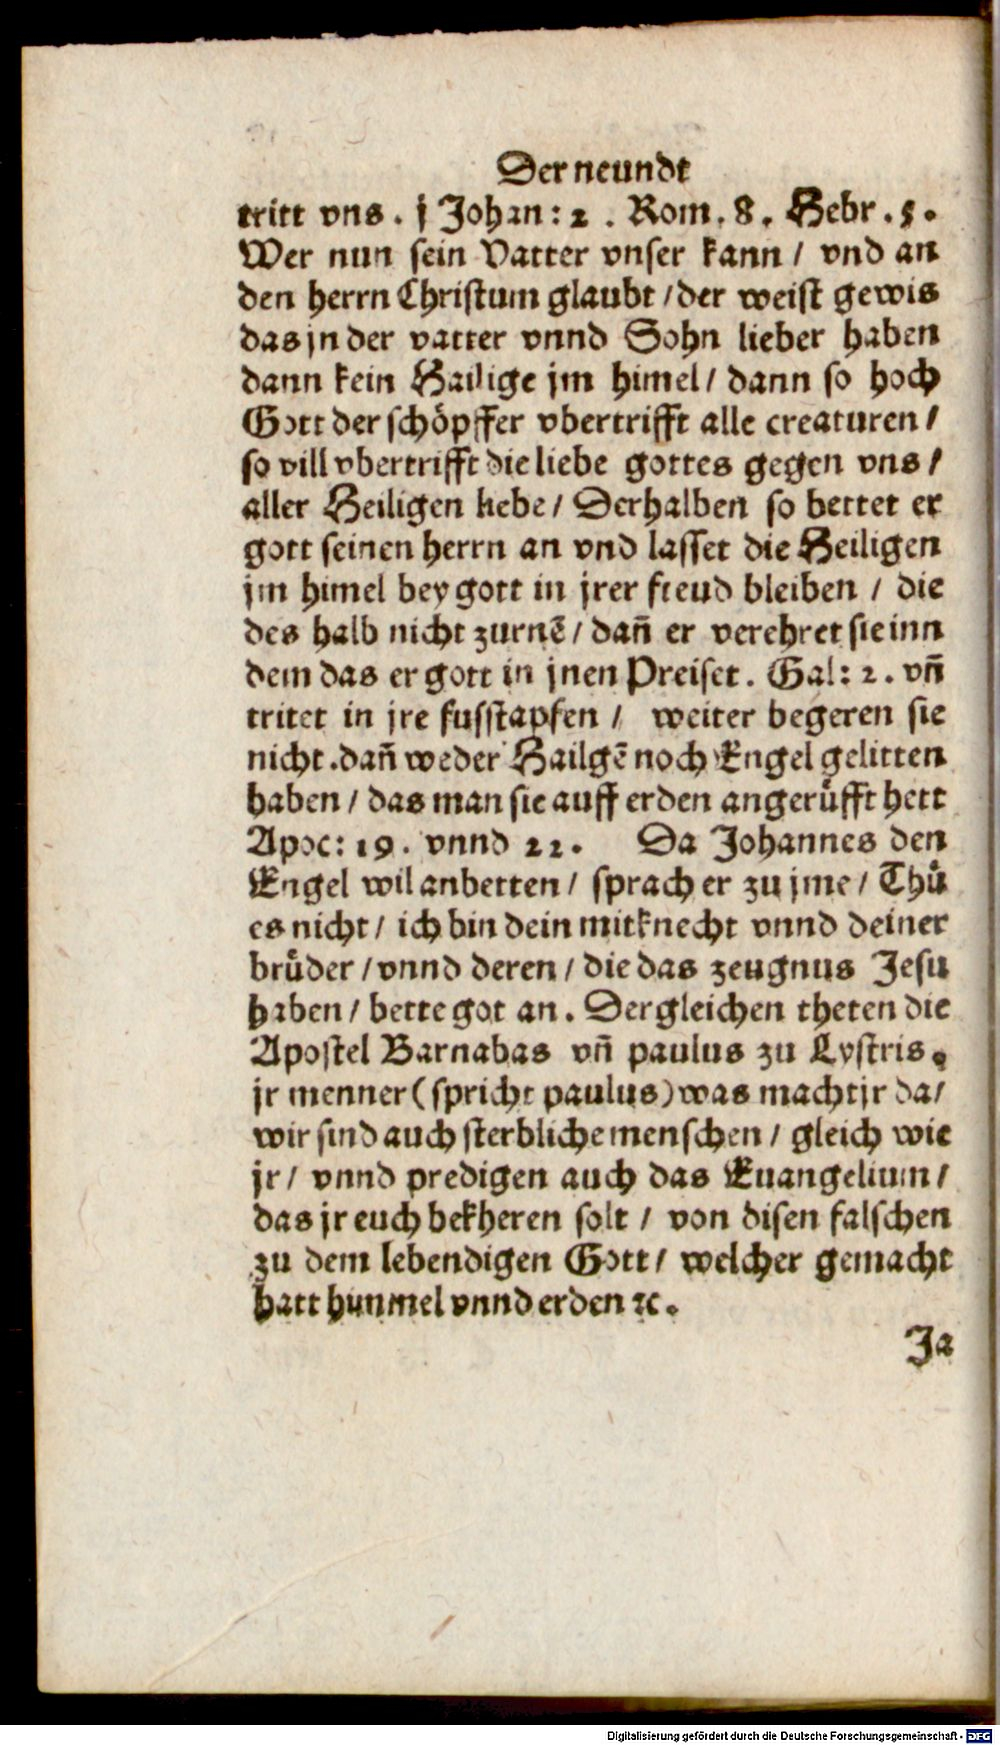 Der neundt
tritt vns . j Johan: 2 . Rom. 8. Hebr. 5.
Wer nun sein Vatter vnser kann / vnd an
den herrn Christum glaubt / der weist gewis
das jn der vatter vnnd Sohn lieber haben
dann kein Hailige jm himel / dann so hoch
Gott der schöpffer vbertrifft alle creaturen /
so vill vbertrifft die liebe gottes gegen vns /
aller Heiligen liebe / Derhalben so bettet er
gott seinen herrn an vnd lasset die Heiligen
jm himel bey gott in jrer freud bleiben / die
des halb nicht zurnē / dañ er verehret sie inn
dem das er gott in jnen Preiset. Gal: 2. vñ
tritet in jre fusstapfen / weiter begeren sie
nicht. dañ weder Hailgē noch Engel gelitten
haben / das man sie auff erden angeruͤfft hett
Apoc: 19. vnnd 22. Da Johannes den
Engel wil anbetten / sprach er zu jme / Thuͤ
es nicht / ich bin dein mitknecht vnnd deiner
bruͤder / vnnd deren / die das zeugnus Jesu
haben / bette got an. Dergleichen theten die
Apostel Barnabas vñ paulus zu Lystris.
jr menner (spricht paulus) was macht jr da /
wir sind auch sterbliche menschen / gleich wie
jr / vnnd predigen auch das Euangelium /
das jr euch bekheren solt / von disen falschen
zu dem lebendigen Gott / welcher gemacht
hatt himmel vnnd erden ꝛc.
Ja
Digitalisierung gefördert durch die Deutsche Forschungsgemeinschaft - DFG